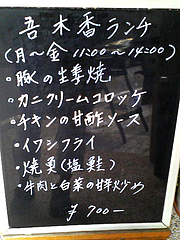 吾木香ランチ
(月〜金 11:00〜14:00)
・豚の生姜焼
・カニクリームコロッケ
・チキンの甘酢ソース
・イワシフライ
・焼魚(塩鮭)
・牛肉と白菜の甘辛炒め
¥700−